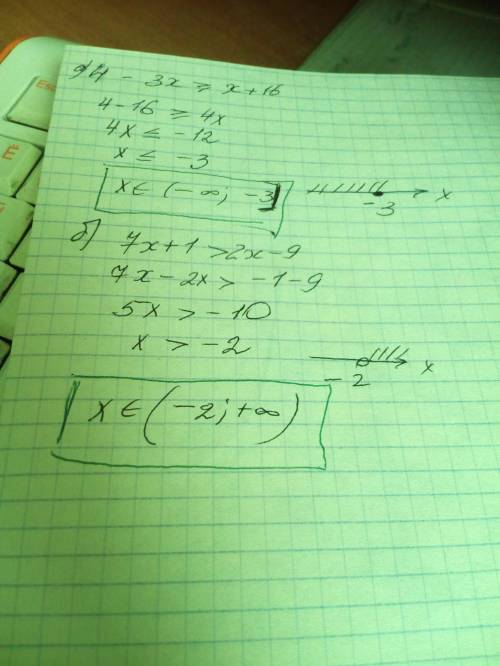 а) 4 - 3x ⩾ x+16
4-16 ⩾ 4x
4x ≤ -12
x ≤ -3
x∈ (-∞; -3]
-3 x
б) 7x+1 > 2x-9
7x-2x > -1-9
5x > -10
x > -2
-2 x
x∈(-2; +∞)
Esc
Ё